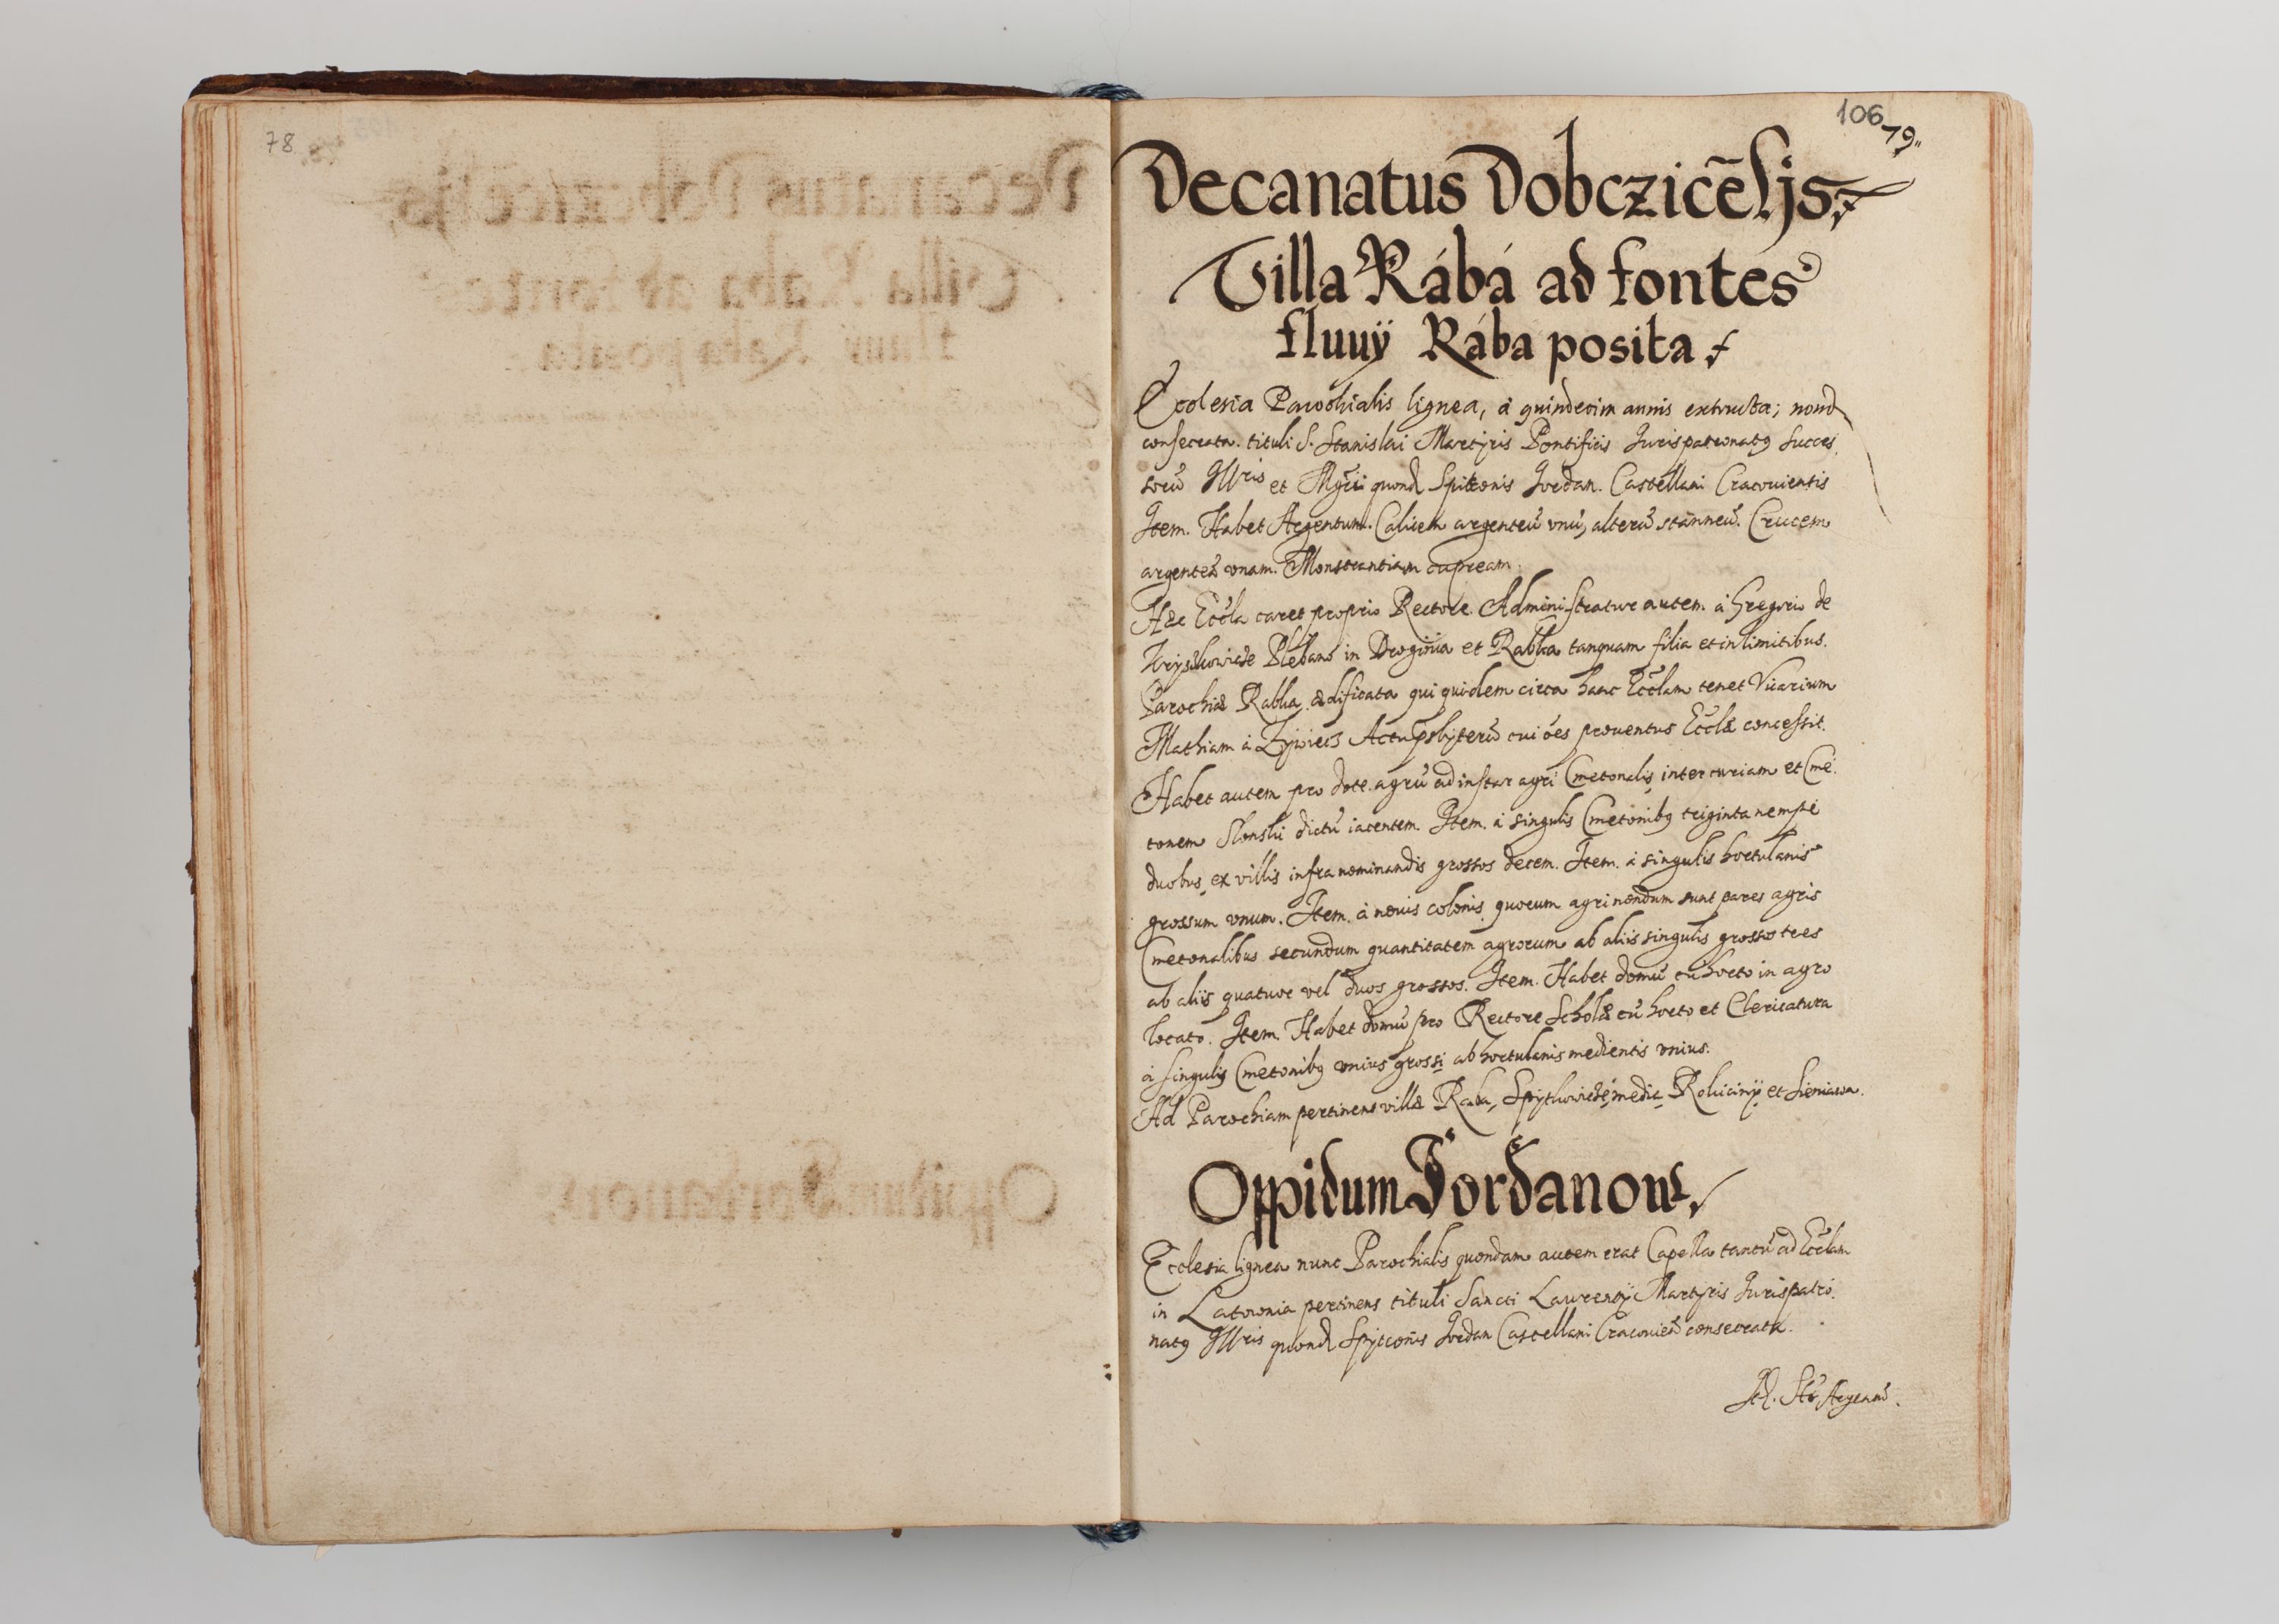 78
106
79
Decanatus Dobczicēsis
Villa Rábá ad fontes
fluuÿ Rába posita
Ecclesia Parochialis lignea, à quindecim annis extructa; nond
consecrata. tituli S. Stanislai Martyris Pontificis Jurispatronatꝰ Succes,
sorū Illris et Mgci quond Spitconis Jordan. Castellani Cracouiensis
Item. Habet Argentum. Calicem argenteū vnū, alterū stanneū. Crucem
argenteā vnam. Monstrantiam cupream.
Hæc Eccla caret proprio Rectore. Administratur autem à Gregorio de
Plebano in Droginia et Rabka tanquam filia et in limitibus.
Parochiæ Rabka ædificata qui quidem circa hanc Ecclam tenet Vicarium
Mathiam à Zÿwiecz Actu psbyterū cui oēs prouentus Ecclæ concessit.
Habet autem pro dote agrū ad instar agri Cmetonalis inter curiam et Cme
tonem Slonski dictū iacentem. Item. à singulis Cmetonibꝰ triginta nempe
duobus ex villis infra nominandis grossos decem. Item. à singulis hortulanis
grossum vnum. Item. à nouis colonis quorum agri nondum sunt pares agris
Cmetonalibus secundum quantitatem agrorum ab aliis singulis grossos tres
ab aliis quatuor vel duos grossos. Item. Habet domū cū horto in agro
locato. Item. Habet domū pro Rectore Scholæ cū horto et Clericatura
à singulis Cmetonibꝰ vnius grossi ab hortulanis medientis vnius.
Ad Parochiam pertinent villæ Raba, Spytkowicze, media Rokicinÿ et Sieniawa.
Oppidum Jordanow
Ecclesia lignea nunc Parochialis quondam autem erat Capella tantū ad Ecclam
in Latownia pertinens tituli Sancti Laurentÿ Martyris Jurispatro
natꝰ Illris quond Spytconis Jordan Castellani Cracouieñ consecrata.